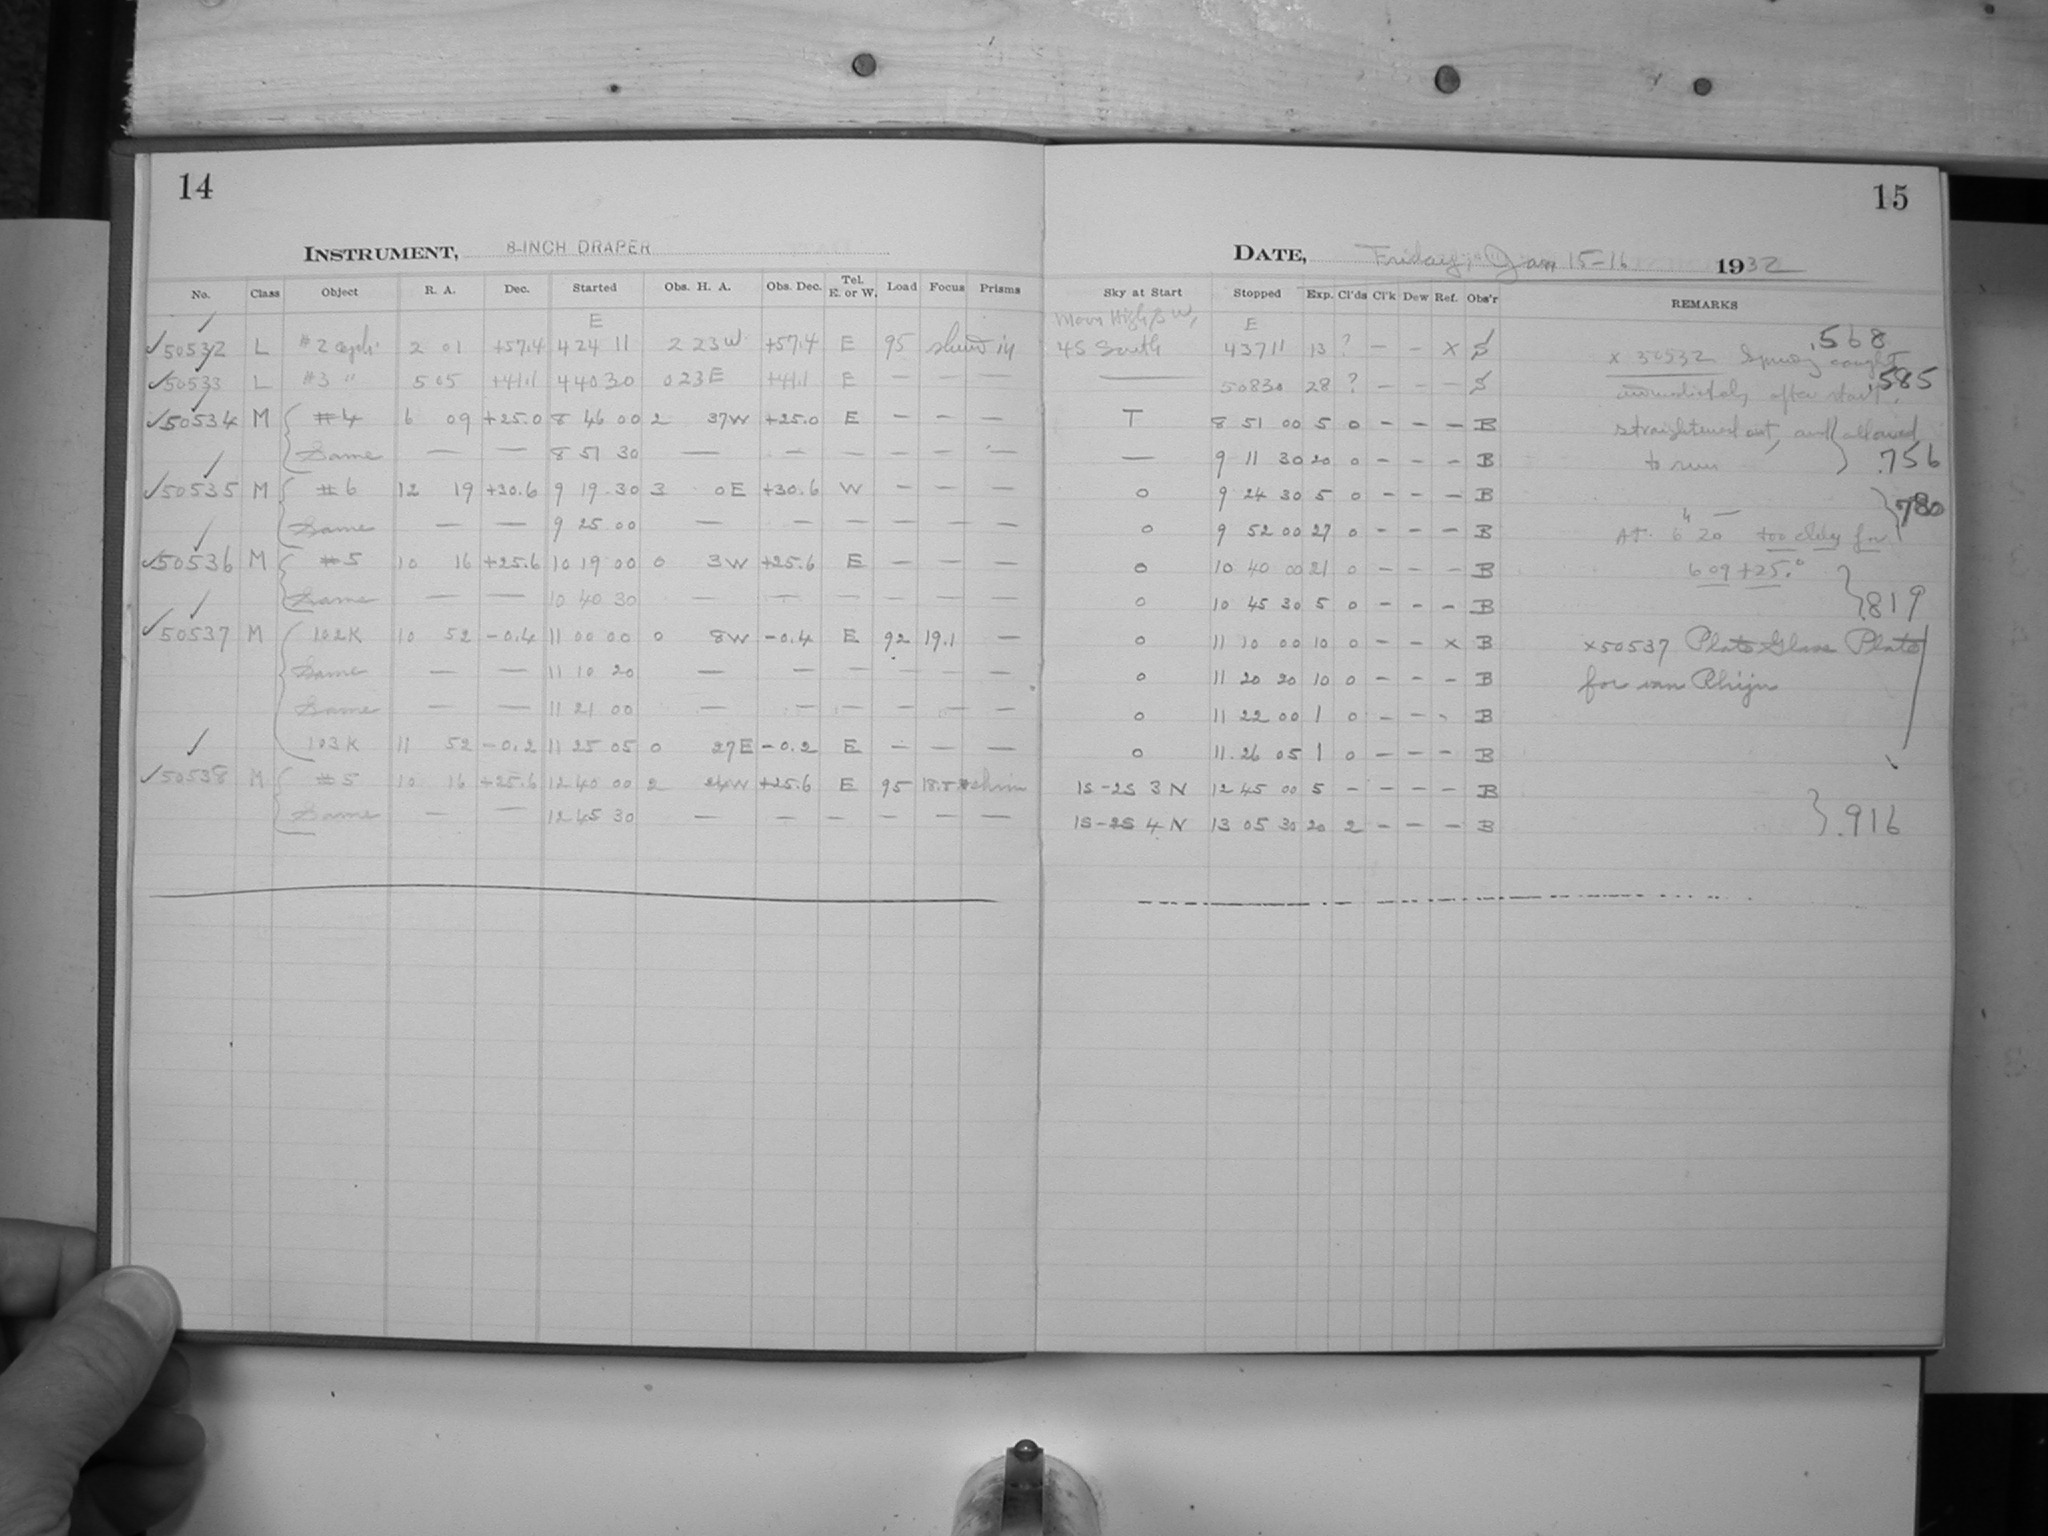 14
INSTRUMENT, 8-INCH DRAPER
No. Class Object R. A. Dec. Started Obs. H. A. Obs. Dec. Tel. E. or W. Load Focus Prisms
E
50532 L #2 2 01 +57.4 4 24 11 2 23 W +57.4 E 95
50533 L #3 " 5 05 +41.1 4 40 30 0 23 E +41.1 E — — —
50534 M #4 6 09 +25.0 8 46 00 2 37 W +25.0 E — — —
Same — — 8 51 30 — — — — — —
50535 M #6 12 19 +30.6 9 19 30 3 0 E +30.6 W — — —
Same — — 9 25 00 — — — — — —
50536 M #5 10 16 +25.6 10 19 00 0 3 W +25.6 E — — —
Same — — 10 40 30 — — — — — —
50537 M 102K 10 52 -0.4 11 00 00 0 8 W -0.4 E 92 19.1 —
Same — — 11 10 20 — — — — — —
Same — — 11 21 00 — — — — — —
103K 11 52 -0.2 11 25 05 0 27 E -0.2 E — — —
50538 M #5 10 16 +25.6 12 40 00 2 24 W +25.6 E 95
Same — — 12 45 30 — — — — — —
15
DATE, Friday, Jan 15-16 1932
Sky at Start Stopped Exp. Cl'ds Cl'k Dew Ref. Obs'r REMARKS
Moon High S W, E
4S South 4 37 11 13 ? — — x S .568
x 50532 Spring caught
— 5 08 30 28 ? — — — S .585
immediately after start,
T 8 51 00 5 0 — — — B straightened out, and allowed
— 9 11 30 20 0 — — — B to run .756
0 9 24 30 5 0 — — — B .780
0 9 52 00 27 0 — — — B At 6h 20 too cldy for
0 10 40 00 21 0 — — — B 6 09 +25.0
0 10 45 30 5 0 — — — B .819
0 11 10 00 10 0 — — x B x50537 Plate Glass Plate
0 11 20 20 10 0 — — — B for van Rhijn
0 11 22 00 1 0 — — — B
0 11 26 05 1 0 — — — B
1S-2S 3 N 12 45 00 5 — — — — B
1S-2S 4 N 13 05 30 20 2 — — — B .916